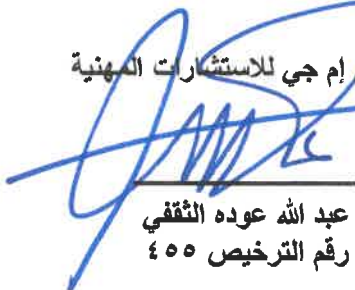 إم جي للاستشارات المهنية
عبد الله عوده الثقفي
رقم الترخيص ٤٥٥